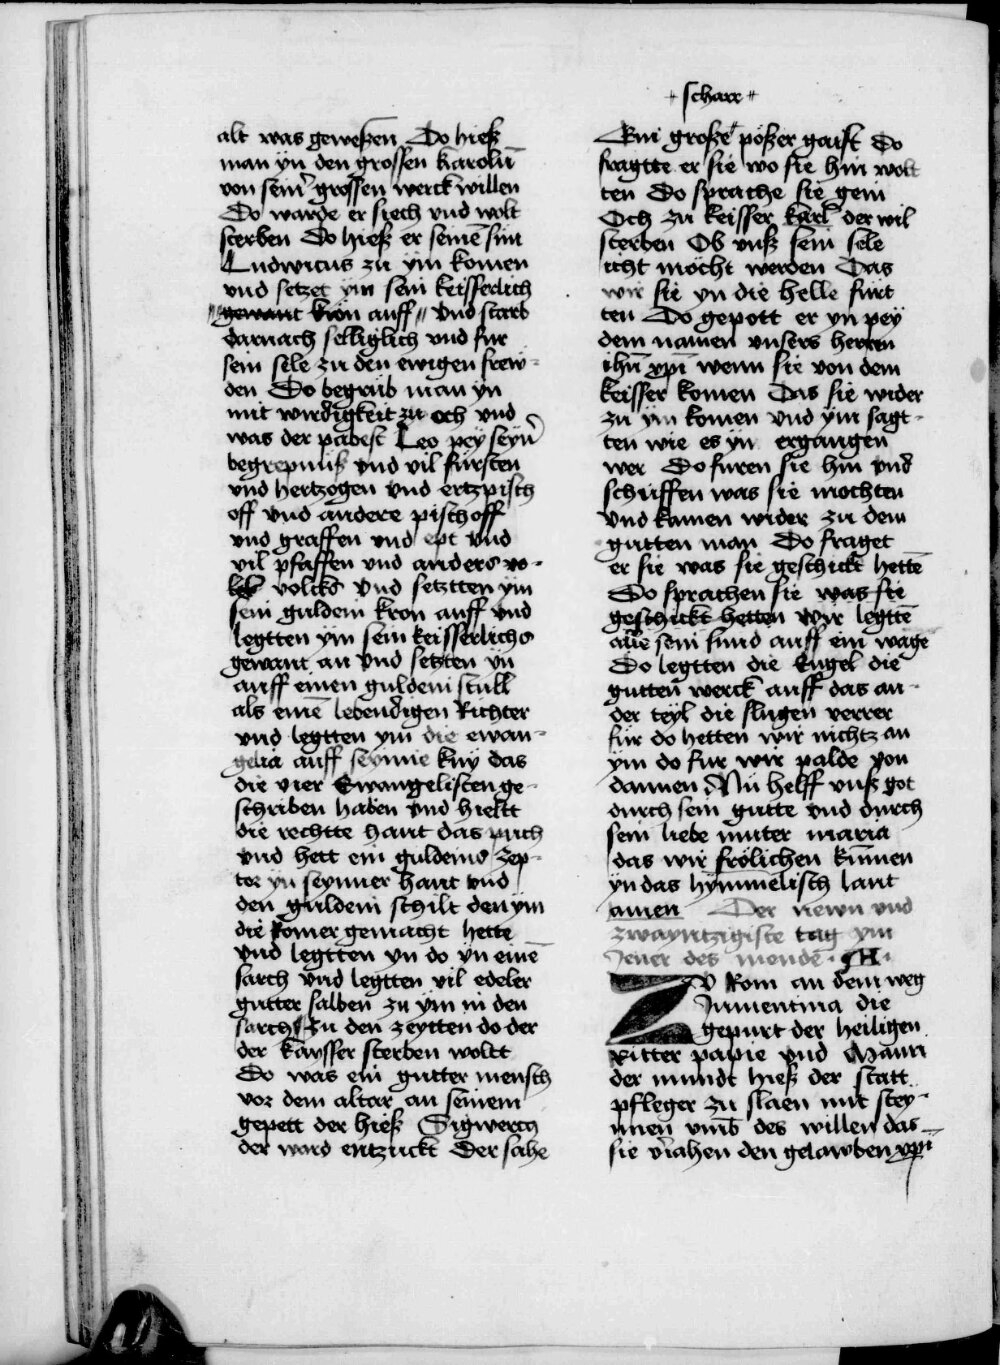 alt was geweßen Do hieß
man yn den grossen karolū
von seinr̄ grossen werck willen
Do warde er siech vnd wolt
sterben Do hieß er seinē sun
Ludwicus zu ym komen
vnd setzet ym sein keisserlich
gewant kron auff vnd starb
darnach selliglich vnd fur
sein sele zu den ewigen frew-
den Do begrub man yn
mit wirdigkeit zu och vnd
was der pabest Leo pey seyn̄
begrepnuß vnd vil fursten
vnd hertzogen vnd ertzpisch
off vnd andere pischoff
vnd graffen vnd ept vnd
vil pfaffen vnd anders vo-
lck volcks vnd setztten ym
sein guldein kron auff vnd
legtten ym sein keisserlichs
gewant an vnd setzten yn
auff einen guldein stull
als einē lebendigen Richter
vnd legtten ym die ewan-
gelia auff seynne kny das
die vier Ewangelisten ge-
schriben haben vnd hieltt
die rechtte hant das puch
vnd hett ein guldeins zep-
ter yn seynner hant vnd
den guldein schilt den ym
die Romer gemacht hette
vnd legtten yn do yn einē
sarch vnd legtten vil edeler
gutter salben zu ym in den
sarch Zu den zeytten do der
der kaysser sterben woltt
Do was ein gutter mensch
vor dem altar an seinem
gepett der hieß Sigwercy
der ward entzuckt Der sahe
scharr
Ein große pößer gaist Do
fragtte er sie wo sie hin wolt
ten Do sprache sie gein
Och zu keisser karl der wil
sterben Ob vnß sein sele
icht mocht werden Das
wir sie yn die helle furt
ten Do gepott er yn pey
dem namen vnsers herren
ihū xpi wenn sie von dem
keisser komen Das sie wider
zu ym komen vnd ym sagt-
ten wie es yn ergangen
wer Do furen sie hin vnd
schuffen was sie mochten
vnd kamen wider zu dem
gutten man Do fraget
er sie was sie geschickt hettē
Do sprachen sie was sie
geschickt hetten Wyr legttē
alle sein sund auff ein wage
Do legtten die Engel die
gutten werck auff das an-
der teyl die slugen verrer
fur do hetten wir nichtz an
ym do fur wir palde von
dannen Nu helff vnß got
durch sein gutte vnd durch
sein liebe muter maria
das wir frolichen kūmen
yn das hymmelisch lant
amen Der newn vnd
zwayntzigiste tag ym
Jener des monden
ZV Rom an dem weg
Numentina die
gepurt der heiligen
Ritter papie vnd Mauri
der mundt hieß der statt
pfleger zu slaen mit stey-
nnen vmb des willen das
sie v̄iahen den gelawben xpi